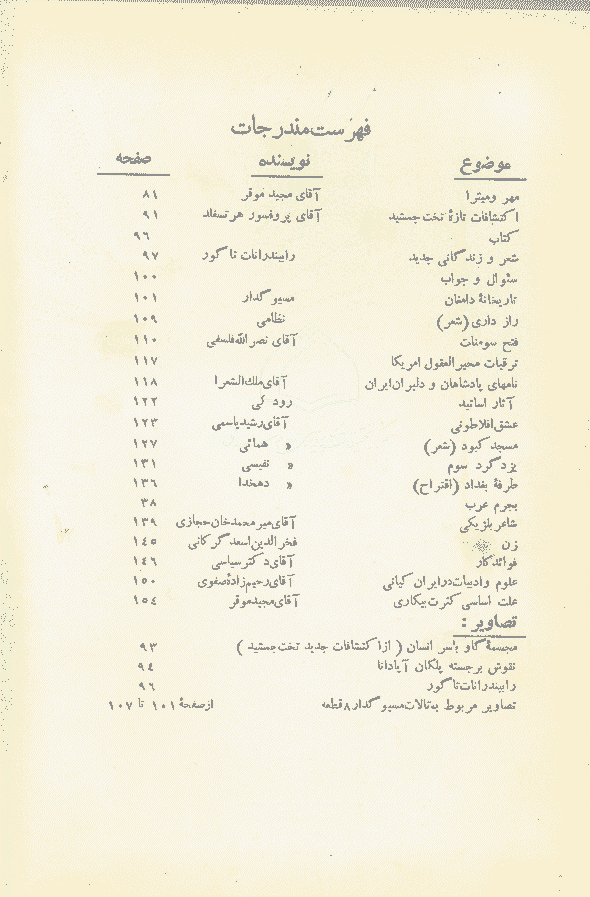 فهرست مندرجات
موضوع نویسنده صفحه
مهر ومیترا آقای مجید موقر ۸۱
اکتشافات تازهٔ تخت جمشید آقای پروفسور هرتسفلد ۹۱
کتاب ۹۶
شعر و زندگانی جدید رابیندرانات تاگور ۹۷
سئوال و جواب ۱۰۰
تاریخانهٔ دامغان مسیو گدار ۱۰۱
راز داری (شعر) نظامی ۱۰۹
فتح سومنات آقای نصرالله فلسفی ۱۱۰
ترقیات محیرالعقول امریکا ۱۱۷
نامهای پادشاهان و دلیران ایران آقای ملك الشعرا ۱۱۸
آثار اساتید رودکی ۱۲۲
عشق افلاطونی آقای رشید یاسمی ۱۲۳
مسجد کبود (شعر) » همائی ۱۲۷
یزدگرد سوم » نفیسی ۱۳۱
طرفهٔ بغداد (اقتراح) » دهخدا ۱۳۶
بجرم عرب ۳۸
شاعر بلژیکی آقای میر محمد خان حجازی ۱۳۹
زن فخرالدین اسعد گرگانی ۱۴۵
فوائد کار آقای دکتر سیاسی ۱۴۶
علوم وادبیات در ایران کیانی آقای رحیم زادهٔ صفوی ۱۵۰
علت اساسی کثرت بیکاری آقای مجید موقر ۱۵۴
تصاویر :
مجسمهٔ گاو باسر انسان ( از اکتشافات جدید تخت جمشید ) ۹۳
نقوش برجسته پلکان آپادانا ۹۴
رابیندرانات تاگور ۹۶
تصاویر مربوط به مقالات مسیو گدار ۸ قطعه از صفحهٔ ۱۰۱ تا ۱۰۷